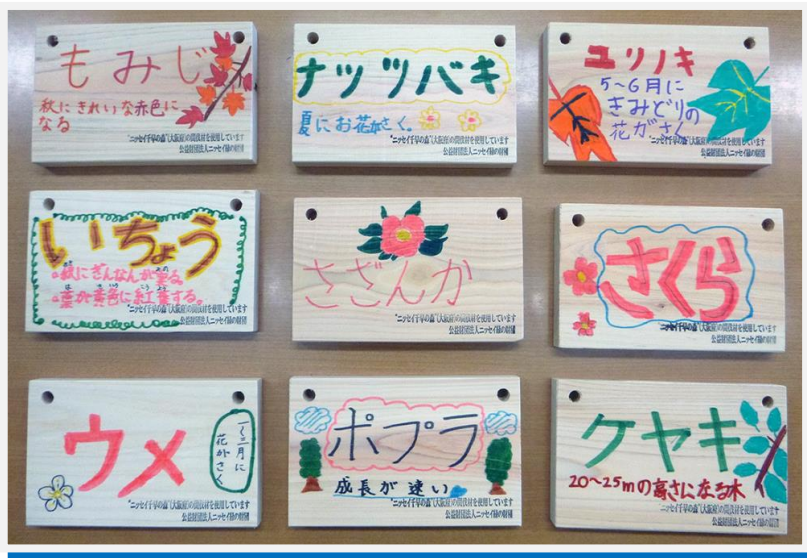 もみじ
秋にきれいな赤色に
なる
"ニッセイ千早の森"(大阪府)の間伐材を使用しています
公益財団法人ニッセイ緑の財団
ナツツバキ
夏にお花がさく。
"ニッセイ千早の森"(大阪府)の間伐材を使用しています
公益財団法人ニッセイ緑の財団
ユリノキ
5~6月に
きみどりの
花がさく
"ニッセイ千早の森"(大阪府)の間伐材を使用しています
公益財団法人ニッセイ緑の財団
いちょう
秋にぎんなんが実る
葉が黄色に紅葉する。
"ニッセイ千早の森"(大阪府)の間伐材を使用しています
公益財団法人ニッセイ緑の財団
さざんか
"ニッセイ千早の森"(大阪府)の間伐材を使用しています
公益財団法人ニッセイ緑の財団
さくら
"ニッセイ千早の森"(大阪府)の間伐材を使用しています
公益財団法人ニッセイ緑の財団
ウメ
花がさく
"ニッセイ千早の森"(大阪府)の間伐材を使用しています
公益財団法人ニッセイ緑の財団
ポプラ
成長が速い
"ニッセイ千早の森"(大阪府)の間伐材を使用しています
公益財団法人ニッセイ緑の財団
ケヤキ
20~25mの高さになる木
"ニッセイ千早の森"(大阪府)の間伐材を使用しています
公益財団法人ニッセイ緑の財団